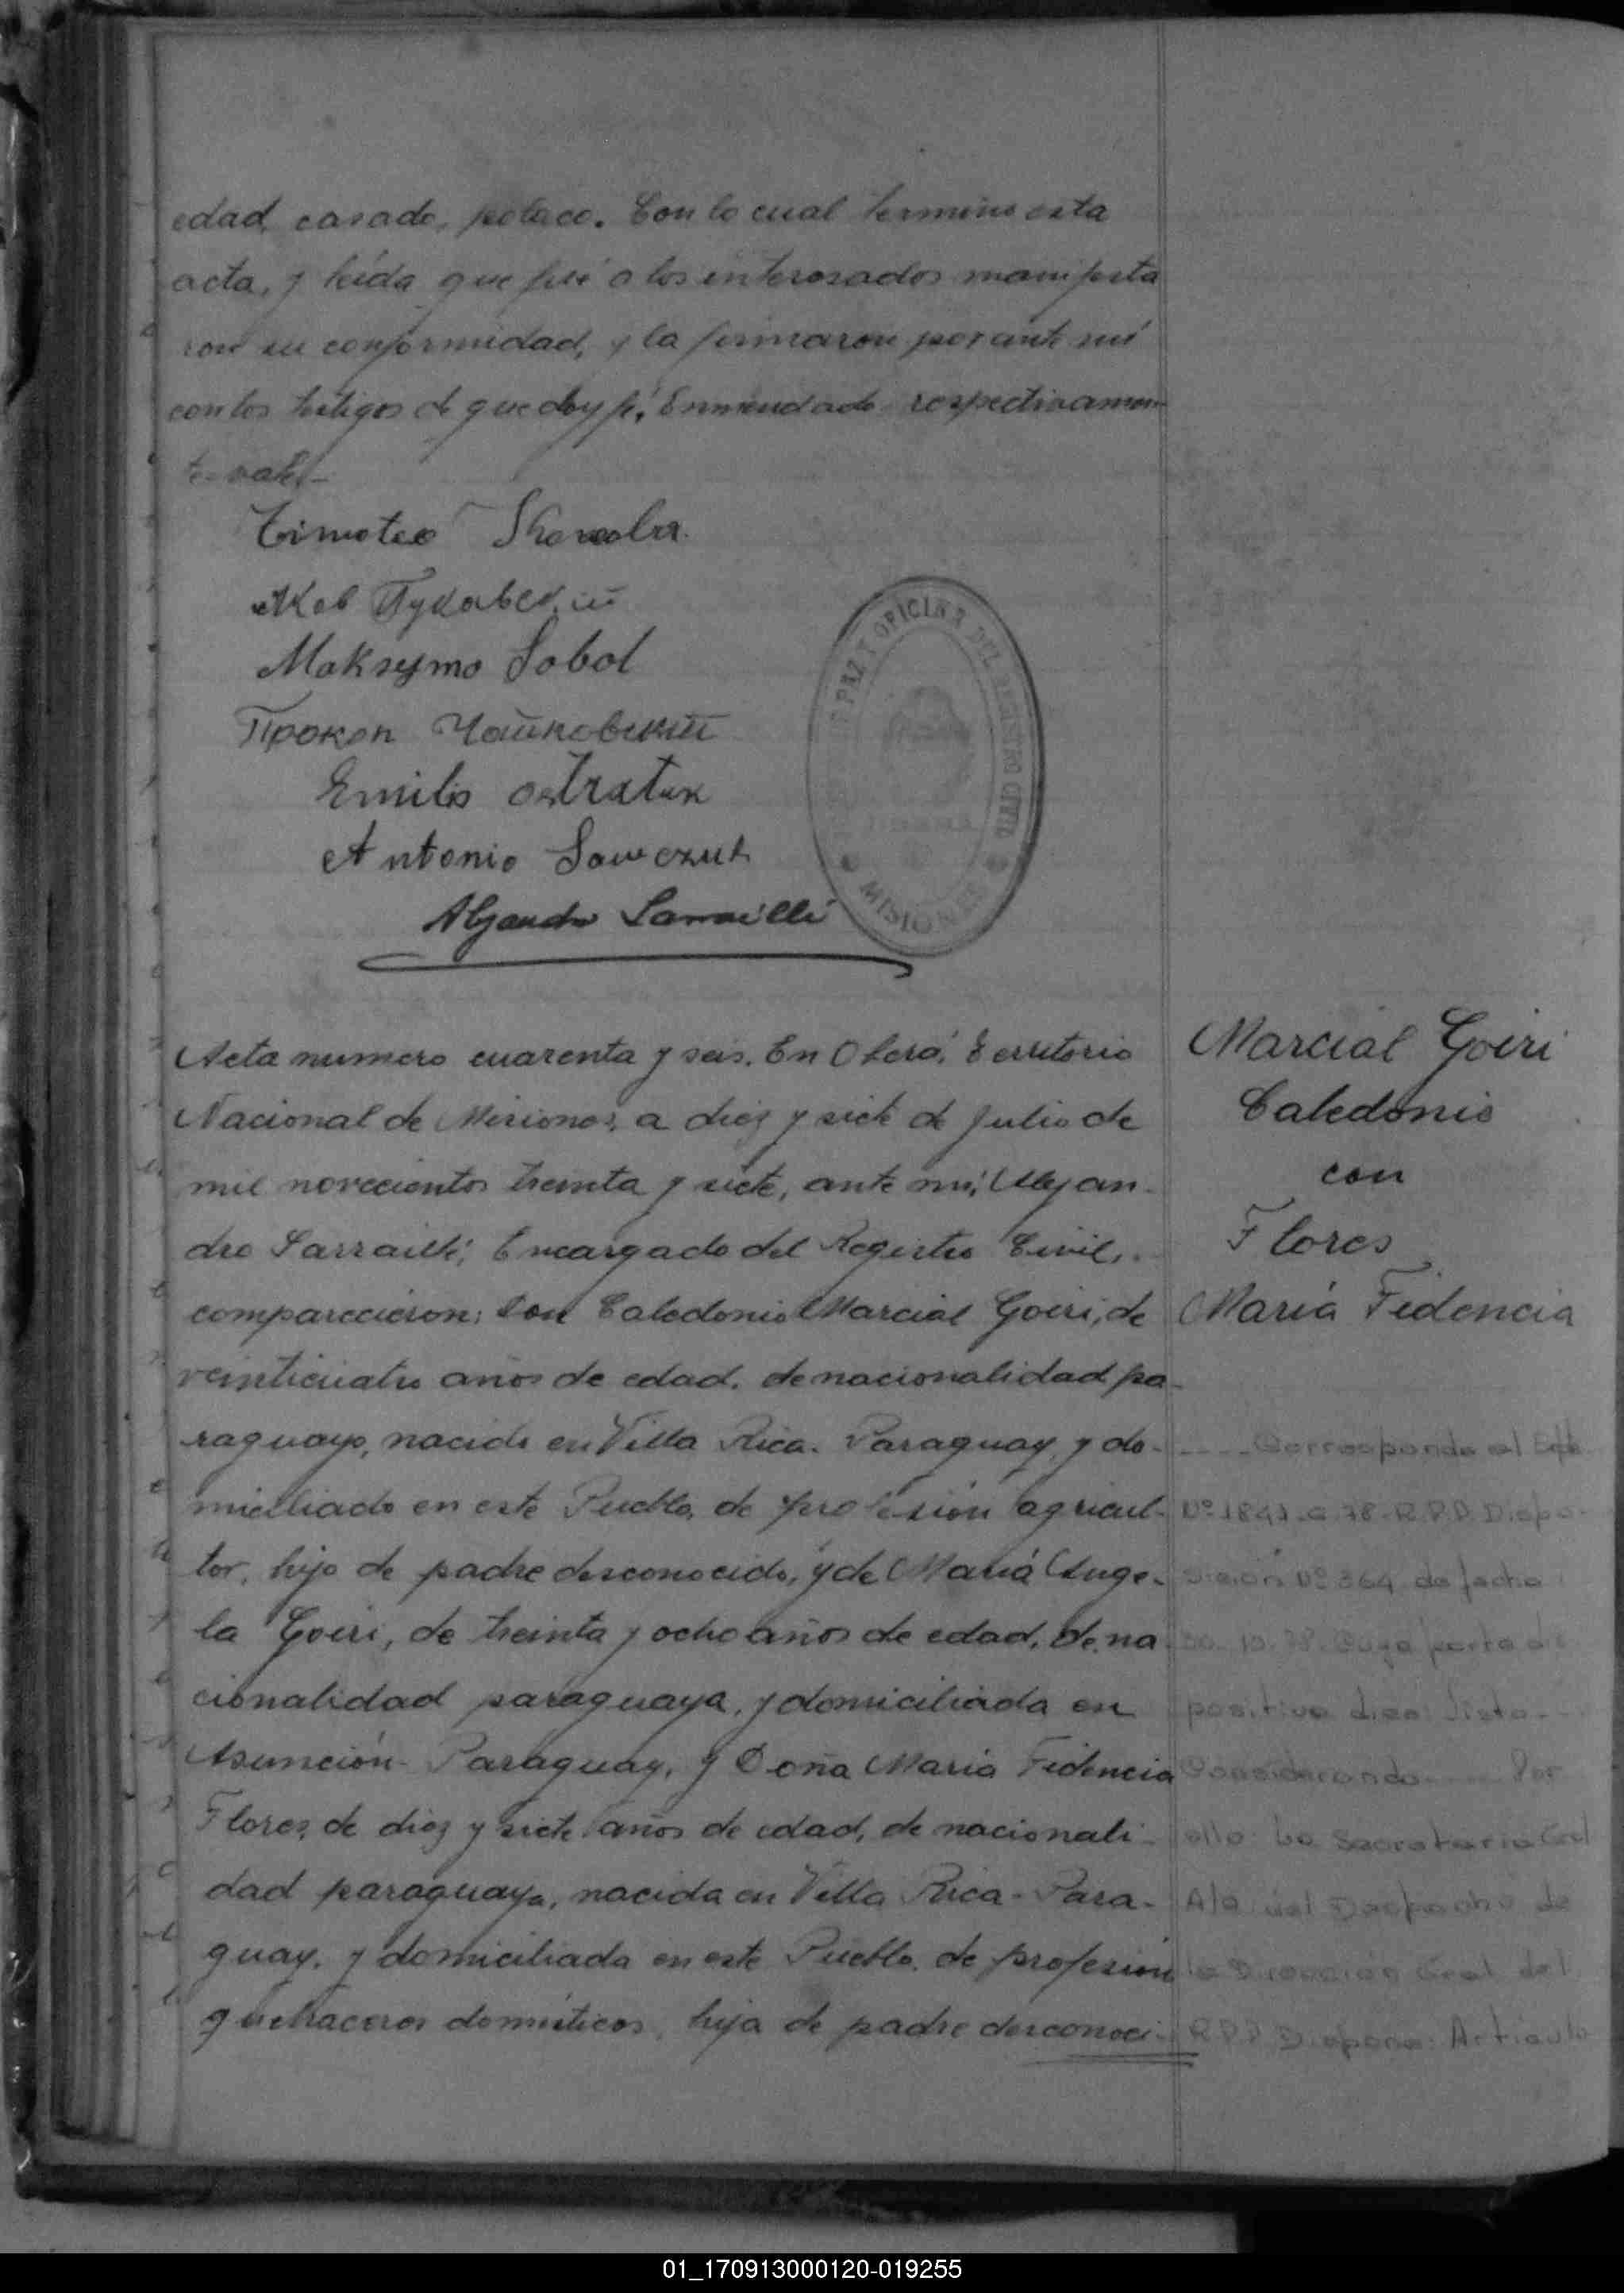 edad, casado, polaco. Con lo cual termino esta
acta, y leída que fué a los interesados manifesta
ron su conformidad, y la firmaron por ante mí
con los testigos de que doy fé. Enmendado respectivamen-
te-vale.-
Timoteo
Maksymo Sobol
Прокоп Чайковский
Emilio Ostratuk
Antonio Sawczuk
Alejandro Sarrailli
PAZ Y OFICINA DEL REGISTRO CIVIL
MISIONES
Acta numero cuarenta y seis. En Oberá, Territorio
Nacional de Misiones, a diez y siete de Julio de
mil novecientos treinta y siete, ante mí, Alejan-
dro Sarrailli, Encargado del Registro Civil,
comparecieron: Don Caledonio Marcial Goiri, de
veinticuatro años de edad, de nacionalidad pa-
raguayo, nacido en Villa Rica. Paraguay, y do-
miciliado en este Pueblo, de profesión agricul-
tor, hijo de padre desconocido, y de María Ange-
la Goiri, de treinta y ocho años de edad, de na
cionalidad paraguaya, y domiciliada en
Asunción- Paraguay, y Doña María Fidencia
Flores, de diez y siete años de edad, de nacionali-
dad paraguaya, nacida en Villa Rica - Para-
guay, y domiciliada en este Pueblo, de profesión
quehaceres domésticos, hija de padre desconoci-
Marcial Goiri
Caledonio
con
Flores
María Fidencia
---- Corresponde al Expte
Nº 1841-G-78-R.P.P. Dispo-
sición Nº 364 de fecha
10.78. Cuya parte dis
positiva dice: Visto--
Considerando---- Por
ello: La Secretaria Gral
A/c del Despacho de
la Dirección Gral del
R.P.P. Dispone: Artículo
01_170913000120-019255